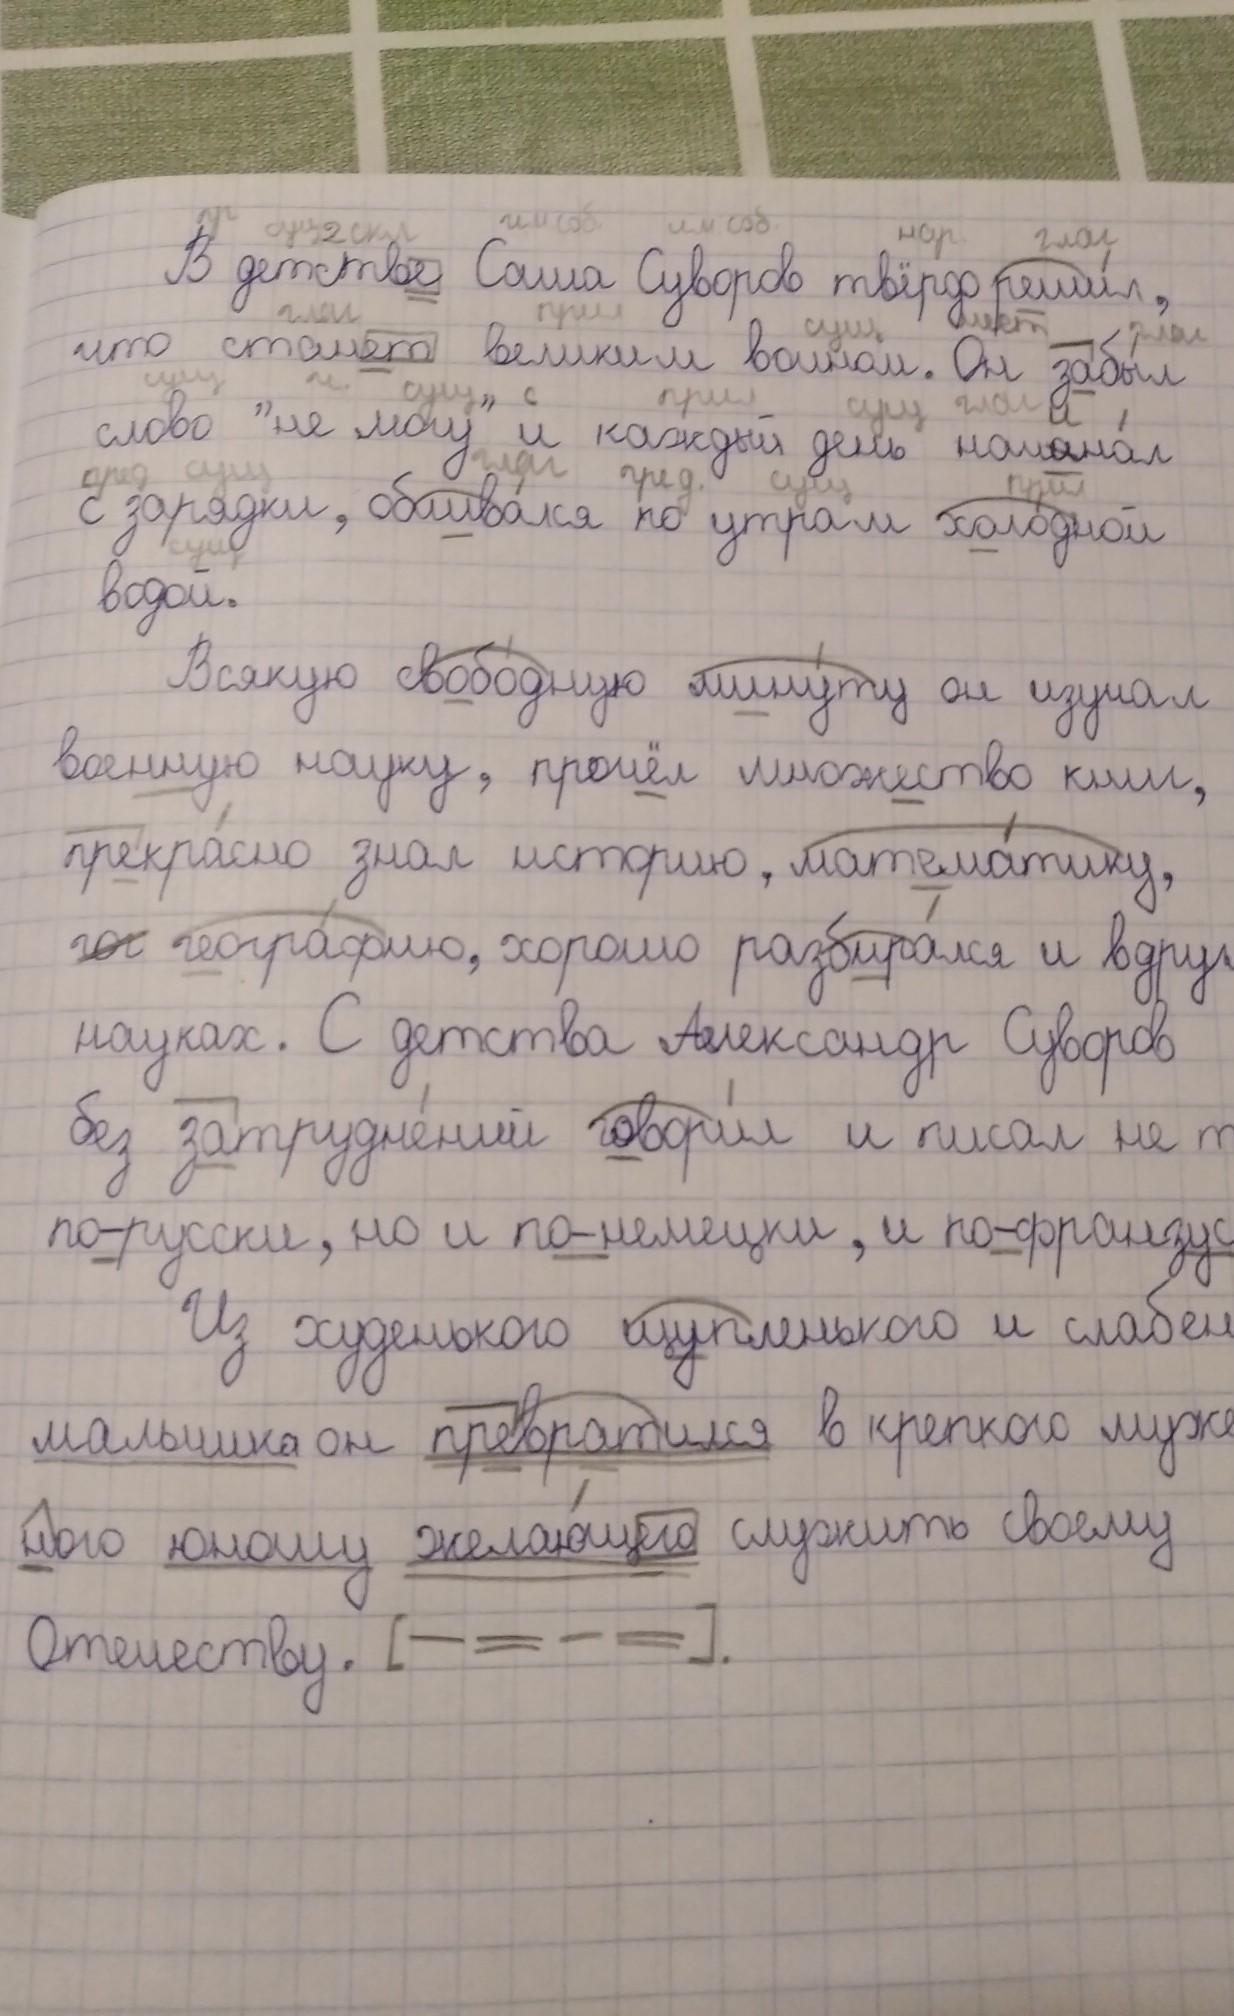 пр сущ 2 скл им соб. им соб. нар. глаг
В детстве Саша Суворов твёрдо решил,
глаг прил сущ мест глаг
что станет великим воином. Он забыл
сущ ч. сущ с прил сущ глаг и
слово "не могу" и каждый день начинал
пред сущ глаг пред. сущ прил
с зарядки, обливался по утрам холодной
сущ
водой.
Всякую свободную минуту он изучал
военную науку, прочёл множество книг,
прекрасно знал историю, математику,
географию, хорошо разбирался и вдруг
науках. С детства Александр Суворов
без затруднений говорил и писал не т
по-русски, но и по-немецки, и по-французс
Из худенького щупленького и слабен
мальчика он превратился в крепкого муже
ного юношу желающего служить своему
Отечеству. [— = — =].